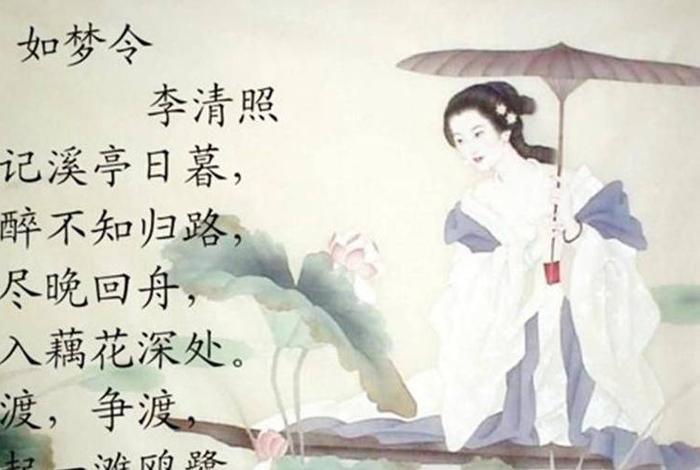 如梦令
李清照
记溪亭日暮，
醉不知归路，
尽晚回舟，
入藕花深处。
渡，争渡，
起一滩鸥鹭